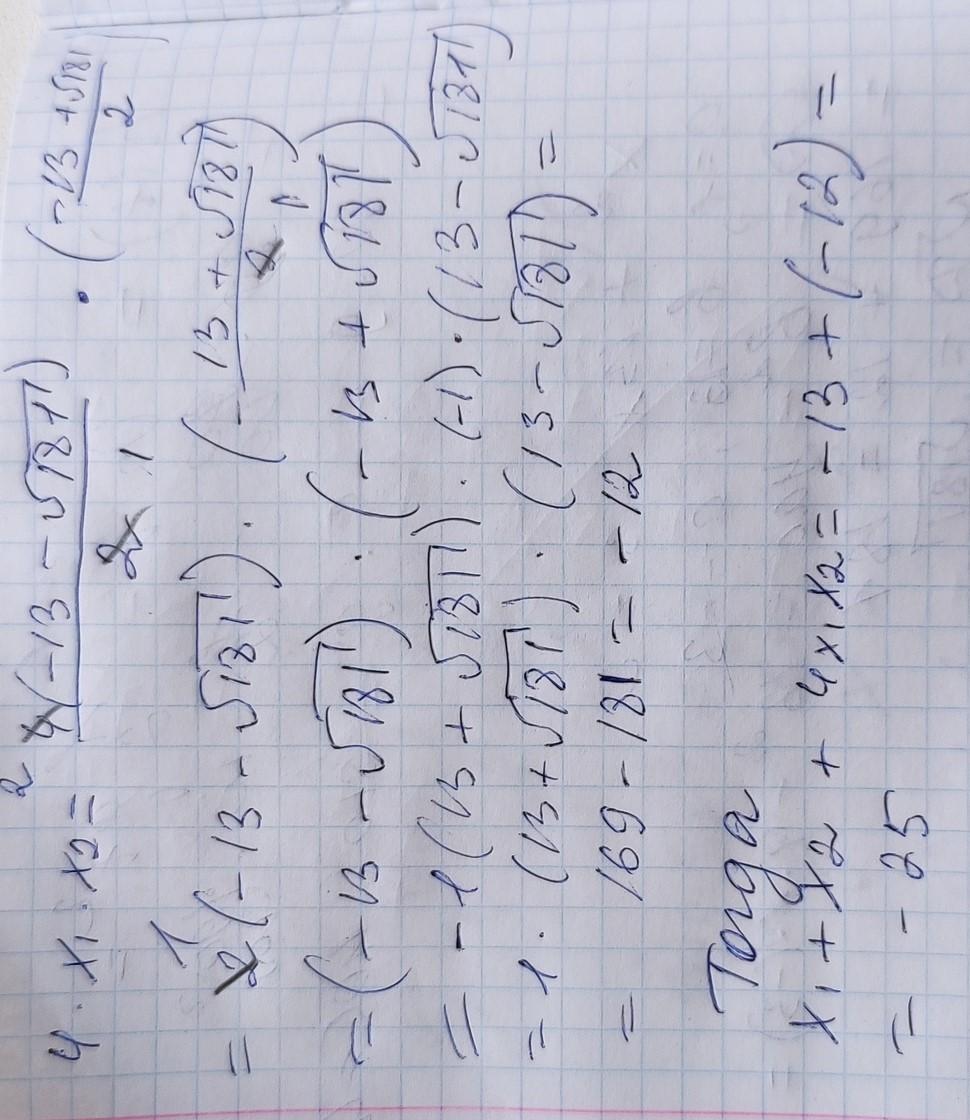 4 · x1 · x2 = 2 4(-13 - √181) / 2 1 · (-13 + √181 / 2)
= 2 1 (-13 - √181) · (-13 + √181 / 2 1)
= (-13 - √181) · (-13 + √181)
= -1(13 + √181) · (-1) · (13 - √181)
= 1 · (13 + √181) · (13 - √181) =
= 169 - 181 = -12
Тогда
x1 + x2 + 4x1x2 = -13 + (-12) =
= -25